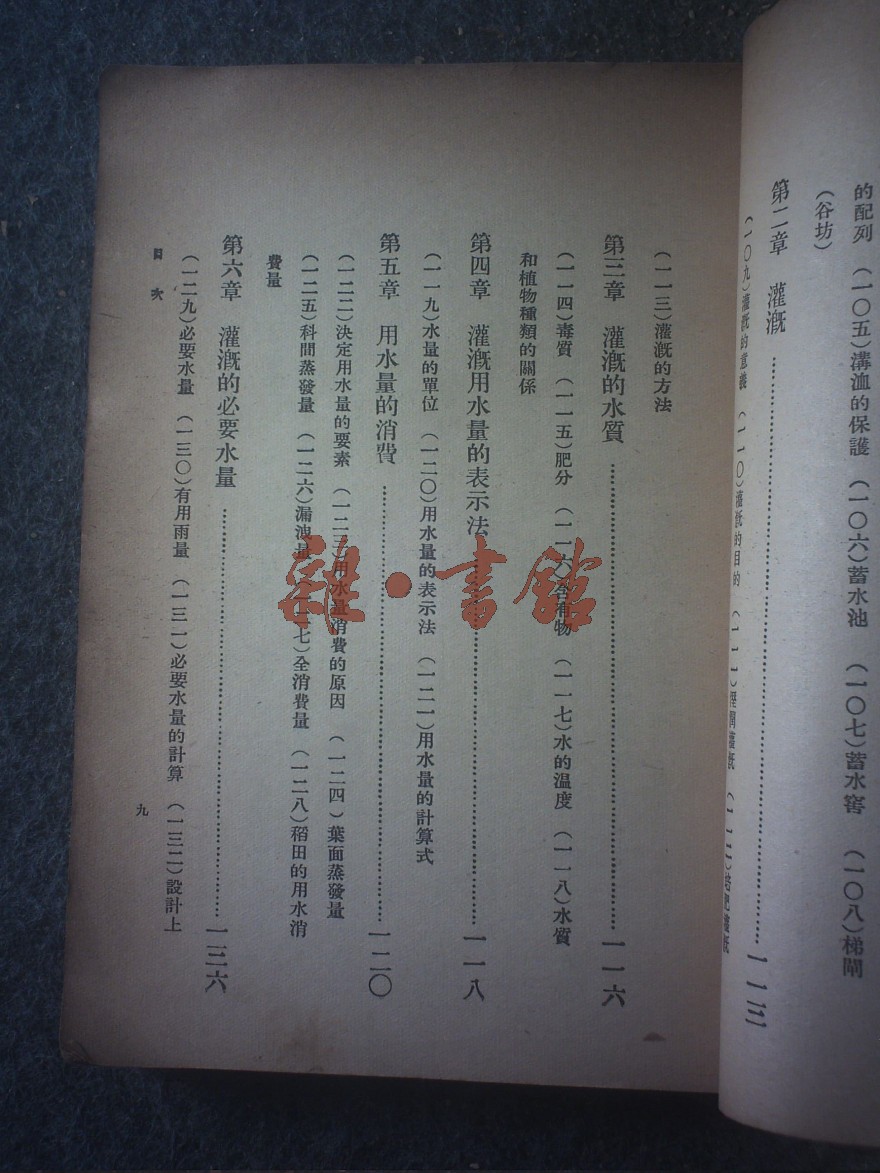 的配列　(一〇五)溝洫的保護　(一〇六)蓄水池　(一〇七)蓄水窖　(一〇八)梯閘
(谷坊)
第二章　灌漑……一一三
(一〇九)灌漑的意義　(一一〇)灌漑的目的　(一一一)溼潤灌漑　(一一二)培肥灌漑
(一一三)灌漑的方法
第三章　灌漑的水質……一一六
(一一四)毒質　(一一五)肥分　(一一六)含有物　(一一七)水的温度　(一一八)水質
和植物種類的關係
第四章　灌漑用水量的表示法……一一八
(一一九)水量的單位　(一二〇)用水量的表示法　(一二一)用水量的計算式
第五章　用水量的消費……一二〇
(一二二)決定用水量的要素　(一二三)用水量消費的原因　(一二四)葉面蒸發量
(一二五)科間蒸發量　(一二六)漏洩量　(一二七)全消費量　(一二八)稻田的用水消
費量
第六章　灌漑的必要水量……一二六
(一二九)必要水量　(一三〇)有用雨量　(一三一)必要水量的計算　(一三二)設計上
目次
九
雜·書館